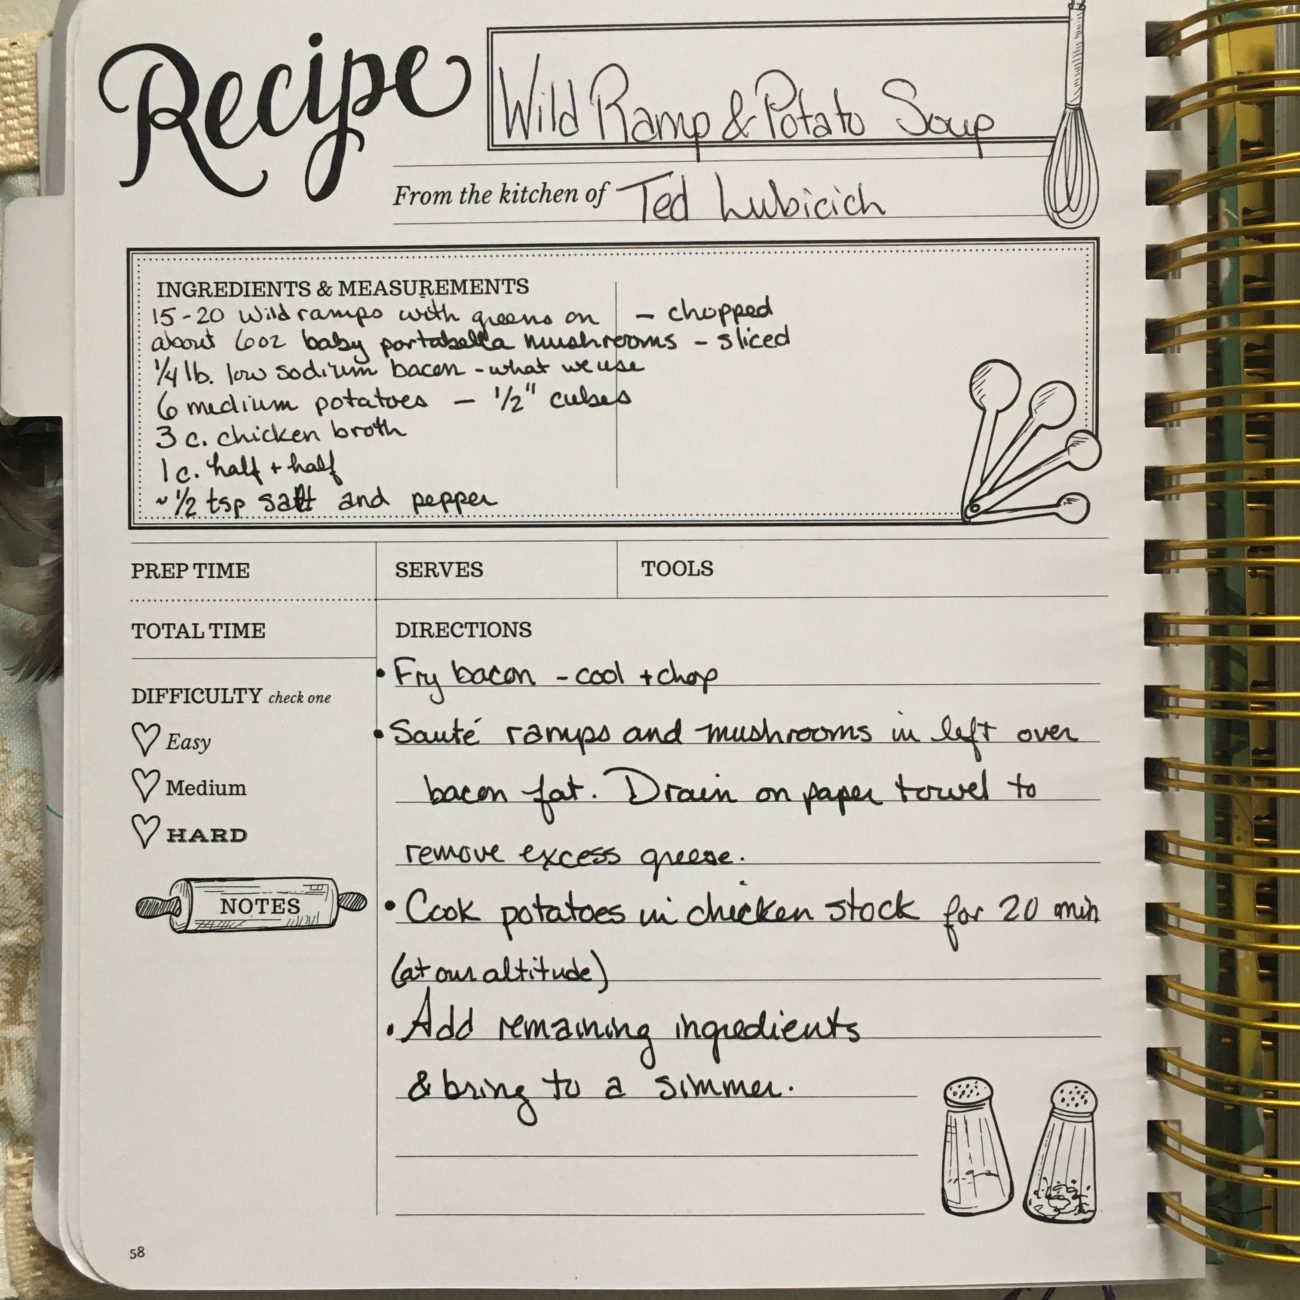 Recipe
Wild Ramp & Potato Soup
From the kitchen of Ted Lubicich
INGREDIENTS & MEASUREMENTS
15-20 wild ramps with greens on - chopped
about 6oz baby portabella mushrooms - sliced
1/4 lb. low sodium bacon - what we use
6 medium potatoes - 1/2" cubes
3 c. chicken broth
1 c. half + half
~ 1/2 tsp salt and pepper
PREP TIME
SERVES
TOOLS
TOTAL TIME
DIFFICULTY check one
Easy
Medium
HARD
NOTES
DIRECTIONS
• Fry bacon - cool + chop
• Sauté ramps and mushrooms in left over
bacon fat. Drain on paper towel to
remove excess greese.
• Cook potatoes in chicken stock for 20 min
(at our altitude)
• Add remaining ingredients
& bring to a simmer.
58